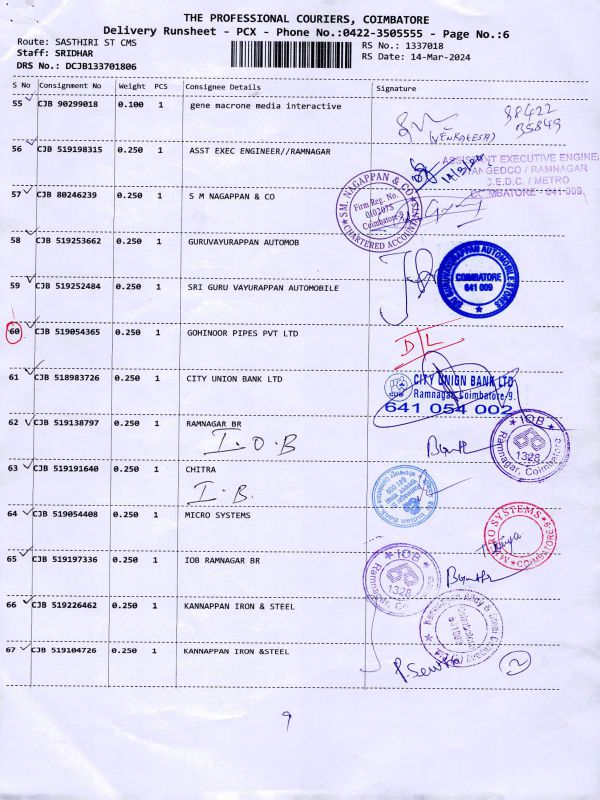 THE PROFESSIONAL COURIERS, COIMBATORE
Delivery Runsheet - PCX - Phone No.:0422-3505555 - Page No.:6
Route: SASTHIRI ST CMS
RS No.: 1337018
Staff: SRIDHAR
RS Date: 14-Mar-2024
DRS No.: DCJB133701806
S No Consignment No Weight PCS Consignee Details Signature
55 CJB 90299018 0.100 1 gene macrone media interactive
98422
35849
(VENKATESA)
56 CJB 519198315 0.250 1 ASST EXEC ENGINEER//RAMNAGAR
ASSISTANT EXECUTIVE ENGINE
TANGEDCO / RAMNAGAR
C.E.D.C. / METRO
COIMBATORE - 641-009.
57 CJB 80246239 0.250 1 S M NAGAPPAN & CO
SM. NAGAPPAN & CO
Firm Reg. No.
010207S
Coimbatore-9
CHARTERED ACCOUNTANTS
58 CJB 519253662 0.250 1 GURUVAYURAPPAN AUTOMOB
SRI GURUVAYURAPPAN AUTOMOBILE STORES
COIMBATORE
641 009
59 CJB 519252484 0.250 1 SRI GURU VAYURAPPAN AUTOMOBILE
60 CJB 519054365 0.250 1 GOHINOOR PIPES PVT LTD
D/L
61 CJB 518983726 0.250 1 CITY UNION BANK LTD
CITY UNION BANK LTD
Ramnagar, Coimbatore-9.
641 054 002
62 CJB 519138797 0.250 1 RAMNAGAR BR
I.O.B
IOB
1328
Ramnagar, Coimbatore
63 CJB 519191640 0.250 1 CHITRA
I.B.
Indian Bank
64 CJB 519054408 0.250 1 MICRO SYSTEMS
MICRO SYSTEMS
COIMBATORE-9
65 CJB 519197336 0.250 1 IOB RAMNAGAR BR
IOB
1328
Ramnagar, Co
66 CJB 519226462 0.250 1 KANNAPPAN IRON & STEEL
67 CJB 519104726 0.250 1 KANNAPPAN IRON &STEEL
2
9